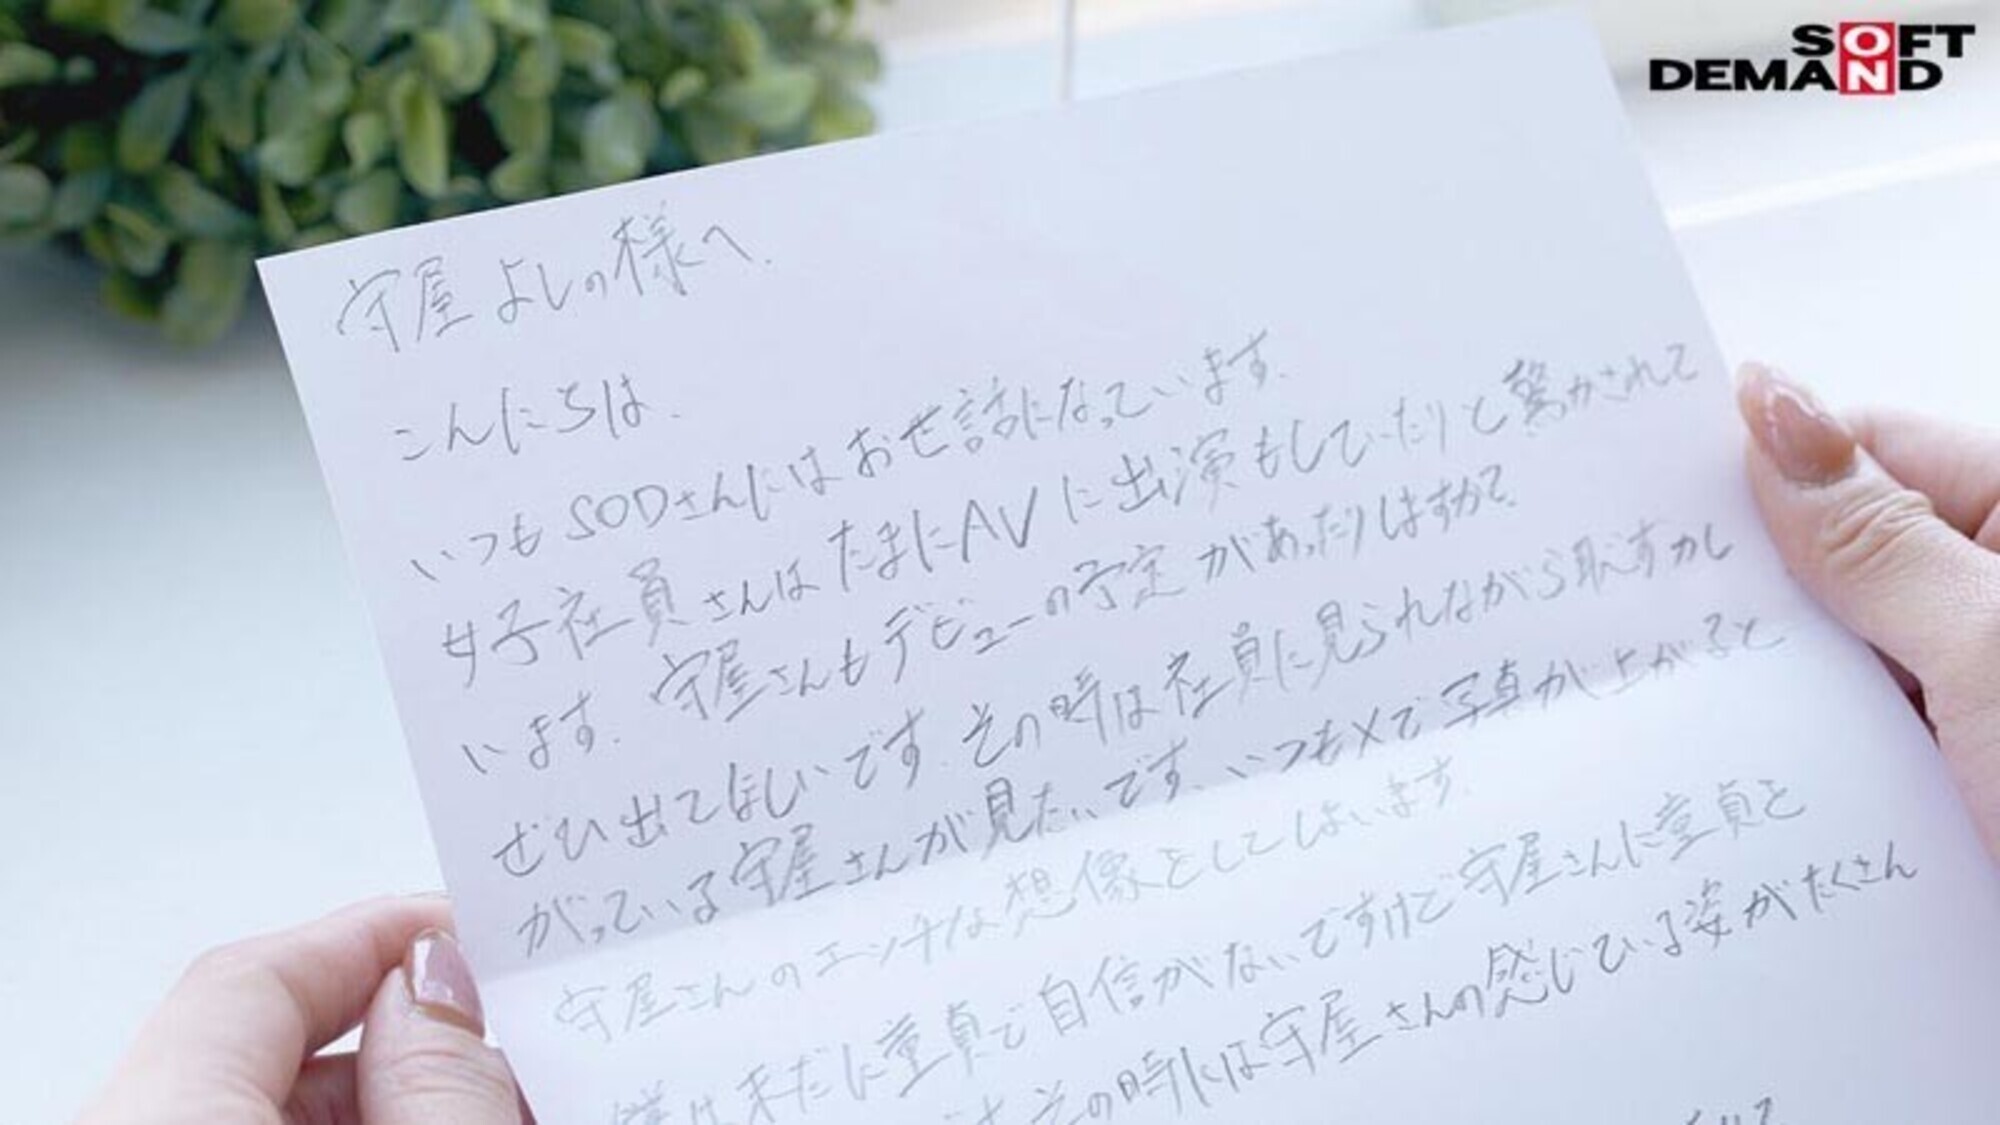 SOFT
ON
DEMAND
守屋よしの様へ.
こんにちは.
いつもSODさんにはお世話になっています.
女子社員さんはたまにAVに出演もしていたりと驚かされて
います. 守屋さんもデビューの予定があったりしますかて.
ぜひ出てほしいです. その時は社員に見られながら恥ずかし
がっている守屋さんが見たいです. いつもXで写真が上がると
守屋さんのエッチな想像をしてしまいます.
僕は未だに童貞で自信がないですけど守屋さんに童貞を
その時には守屋さんの感じている姿がたくさん